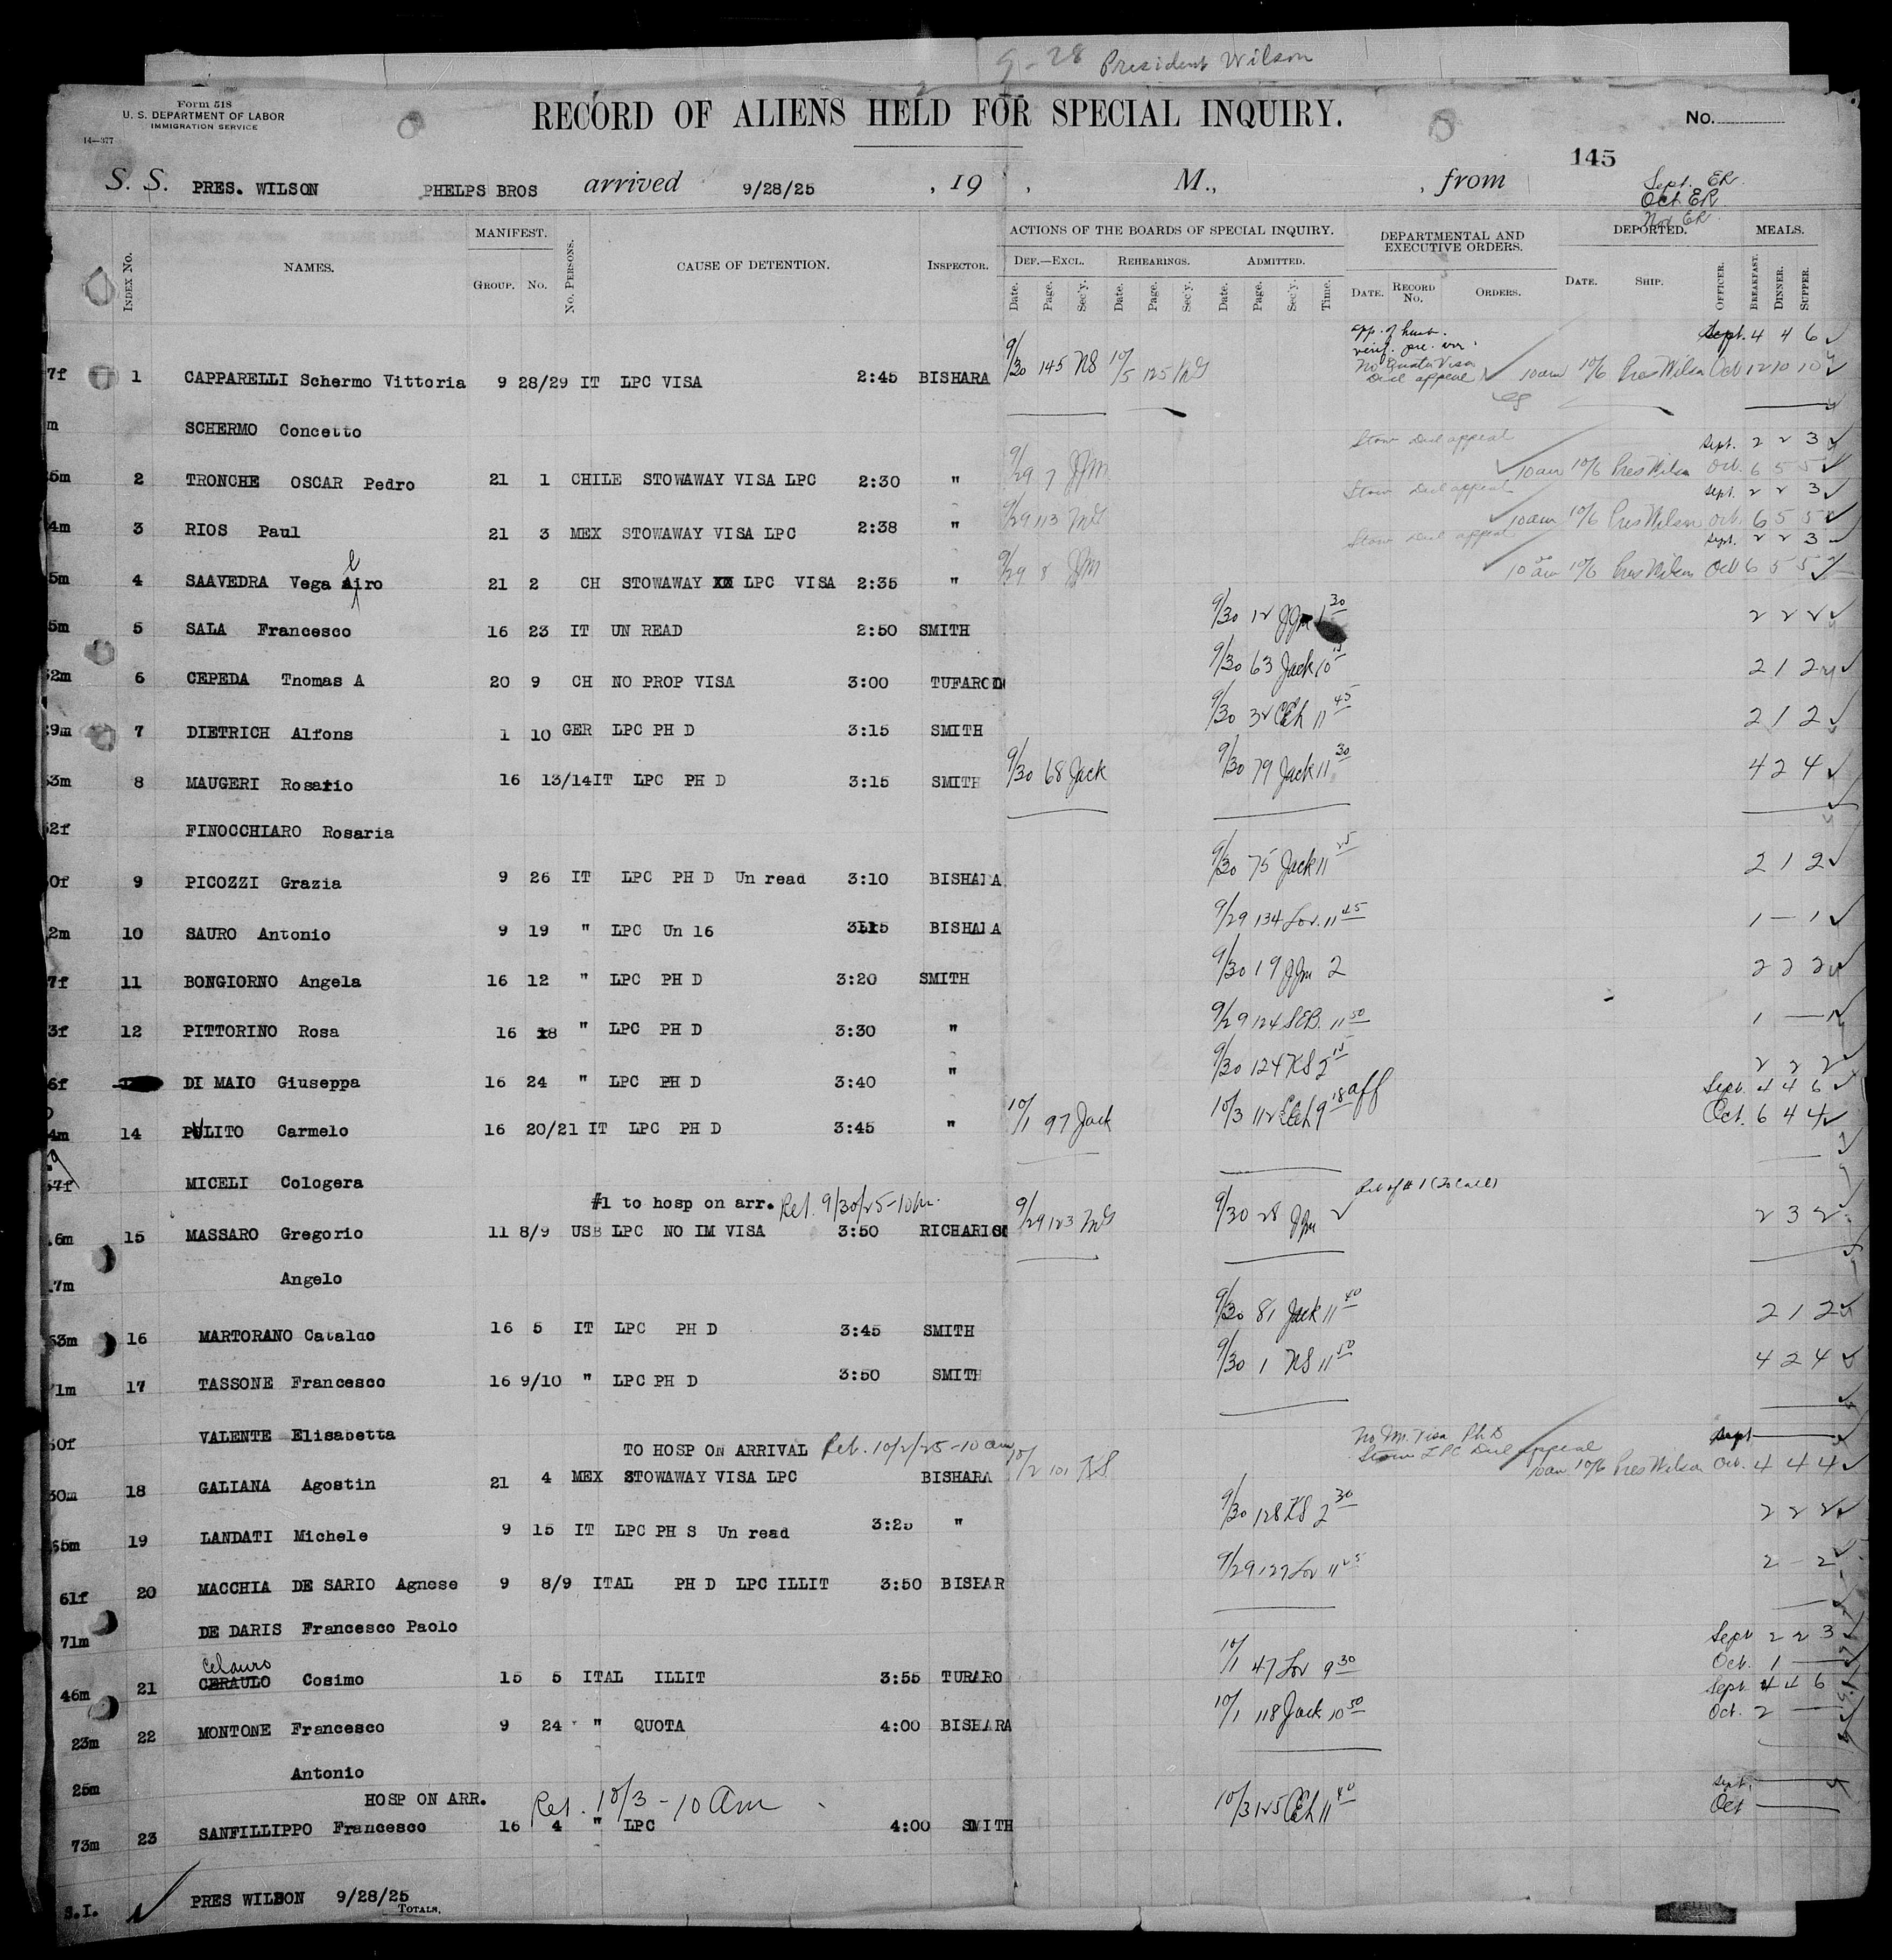 9-28 President Wilson
Form 518
U. S. DEPARTMENT OF LABOR
IMMIGRATION SERVICE
14—377
RECORD OF ALIENS HELD FOR SPECIAL INQUIRY.
No.
145
S. S. PRES. WILSON PHELPS BROS arrived 9/28/25 , 19 , M., , from
Sept. ER.
Oct ER.
Nov ER.
INDEX No. NAMES. MANIFEST. GROUP. No. No. PERSONS. CAUSE OF DETENTION. INSPECTOR. ACTIONS OF THE BOARDS OF SPECIAL INQUIRY. DEPARTMENTAL AND EXECUTIVE ORDERS. DEPORTED. MEALS.
DEF.—EXCL. REHEARINGS. ADMITTED.
Date. Page. Sec'y. Date. Page. Sec'y. Date. Page. Sec'y. Time. DATE. RECORD No. ORDERS. DATE. SHIP. OFFICER. BREAKFAST. DINNER. SUPPER.
app. of husb. Sept. 4 4 6
No Quota Visa
Decl appeal
7f 1 CAPPARELLI Schermo Vittoria 9 28/29 IT LPC VISA 2:45 BISHARA 9/30 145 NS 10/5 125 10am 10/6 Pres Wilson Oct 12 10 10
m SCHERMO Concetto
Stow Decl appeal Sept. 2 2 3
5m 2 TRONCHE OSCAR Pedro 21 1 CHILE STOWAWAY VISA LPC 2:30 " 9/29 7 JJM 10am 10/6 Pres Wilson Oct. 6 5 5
Stow Decl appeal Sept. 2 2 3
4m 3 RIOS Paul 21 3 MEX STOWAWAY VISA LPC 2:38 " 9/29 113 10am 10/6 Pres Wilson Oct. 6 5 5
Stow Decl appeal Sept. 2 2 3
5m 4 SAAVEDRA Vega Aliro 21 2 CH STOWAWAY LPC VISA 2:35 " 9/29 8 JJM 10am 10/6 Pres Wilson Oct 6 5 5
5m 5 SALA Francesco 16 23 IT UN READ 2:50 SMITH 9/30 12 JJM 1 30 2 2 2
2m 6 CEPEDA Tnomas A 20 9 CH NO PROP VISA 3:00 TUFARO 9/30 63 Jack 10 15 2 1 2
29m 7 DIETRICH Alfons 1 10 GER LPC PH D 3:15 SMITH 9/30 32 CEh 11 45 2 1 2
53m 8 MAUGERI Rosario 16 13/14 IT LPC PH D 3:15 SMITH 9/30 68 Jack 9/30 79 Jack 11 30 4 2 4
52f FINOCCHIARO Rosaria
0f 9 PICOZZI Grazia 9 26 IT LPC PH D Un read 3:10 BISHARA 9/30 75 Jack 11 25 2 1 2
2m 10 SAURO Antonio 9 19 " LPC Un 16 3:15 BISHARA 9/29 134 Lov. 11 45 1 — 1
7f 11 BONGIORNO Angela 16 12 " LPC PH D 3:20 SMITH 9/30 19 JJM 2 2 2 2
3f 12 PITTORINO Rosa 16 18 " LPC PH D 3:30 " 9/29 124 SEB. 11 50 1 — 1
6f DI MAIO Giuseppa 16 24 " LPC PH D 3:40 " 9/30 124 KS 2 15 2 2 2
Sept. 4 4 6
4m 14 PULITO Carmelo 16 20/21 IT LPC PH D 3:45 " 10/1 97 Jack 10/3 112 CEh 9 18 aff Oct. 6 4 4
57f MICELI Cologera
#1 to hosp on arr. Rel. 9/30/25-10am.
16m 15 MASSARO Gregorio 11 8/9 USB LPC NO IM VISA 3:50 RICHARDSON 9/29 123 9/30 28 JJM 2 Rel of #1 2 3 2
17m Angelo
53m 16 MARTORANO Cataldo 16 5 IT LPC PH D 3:45 SMITH 9/30 81 Jack 11 40 2 1 2
71m 17 TASSONE Francesco 16 9/10 " LPC PH D 3:50 SMITH 9/30 1 NS 11 50 4 2 4
60f VALENTE Elisabetta
TO HOSP ON ARRIVAL Rel. 10/2/25-10am No Im. Visa Ph D Sept
Stow LPC Decl appeal
30m 18 GALIANA Agostin 21 4 MEX STOWAWAY VISA LPC BISHARA 10/2 101 KS 10am 10/6 Pres Wilson Oct. 4 4 4
65m 19 LANDATI Michele 9 15 IT LPC PH S Un read 3:25 " 9/30 128 KS 2 30 2 2 2
61f 20 MACCHIA DE SARIO Agnese 9 8/9 ITAL PH D LPC ILLIT 3:50 BISHAR 9/29 127 Lov 11 25 2 - 2
71m DE DARIS Francesco Paolo
Celauro Sept 2 2 3
46m 21 CERAULO Cosimo 15 5 ITAL ILLIT 3:55 TURARO 10/1 47 Lov 9 30 Oct. 1 —
Sept. 4 4 6
23m 22 MONTONE Francesco 9 24 " QUOTA 4:00 BISHARA 10/1 118 Jack 10 50 Oct. 2 —
25m Antonio
HOSP ON ARR. Rel. 10/3-10 am Sept.
73m 23 SANFILLIPPO Francesco 16 4 " LPC 4:00 SMITH 10/3 125 CEh 11 40 Oct
S.I. PRES WILSON 9/28/25
TOTALS.